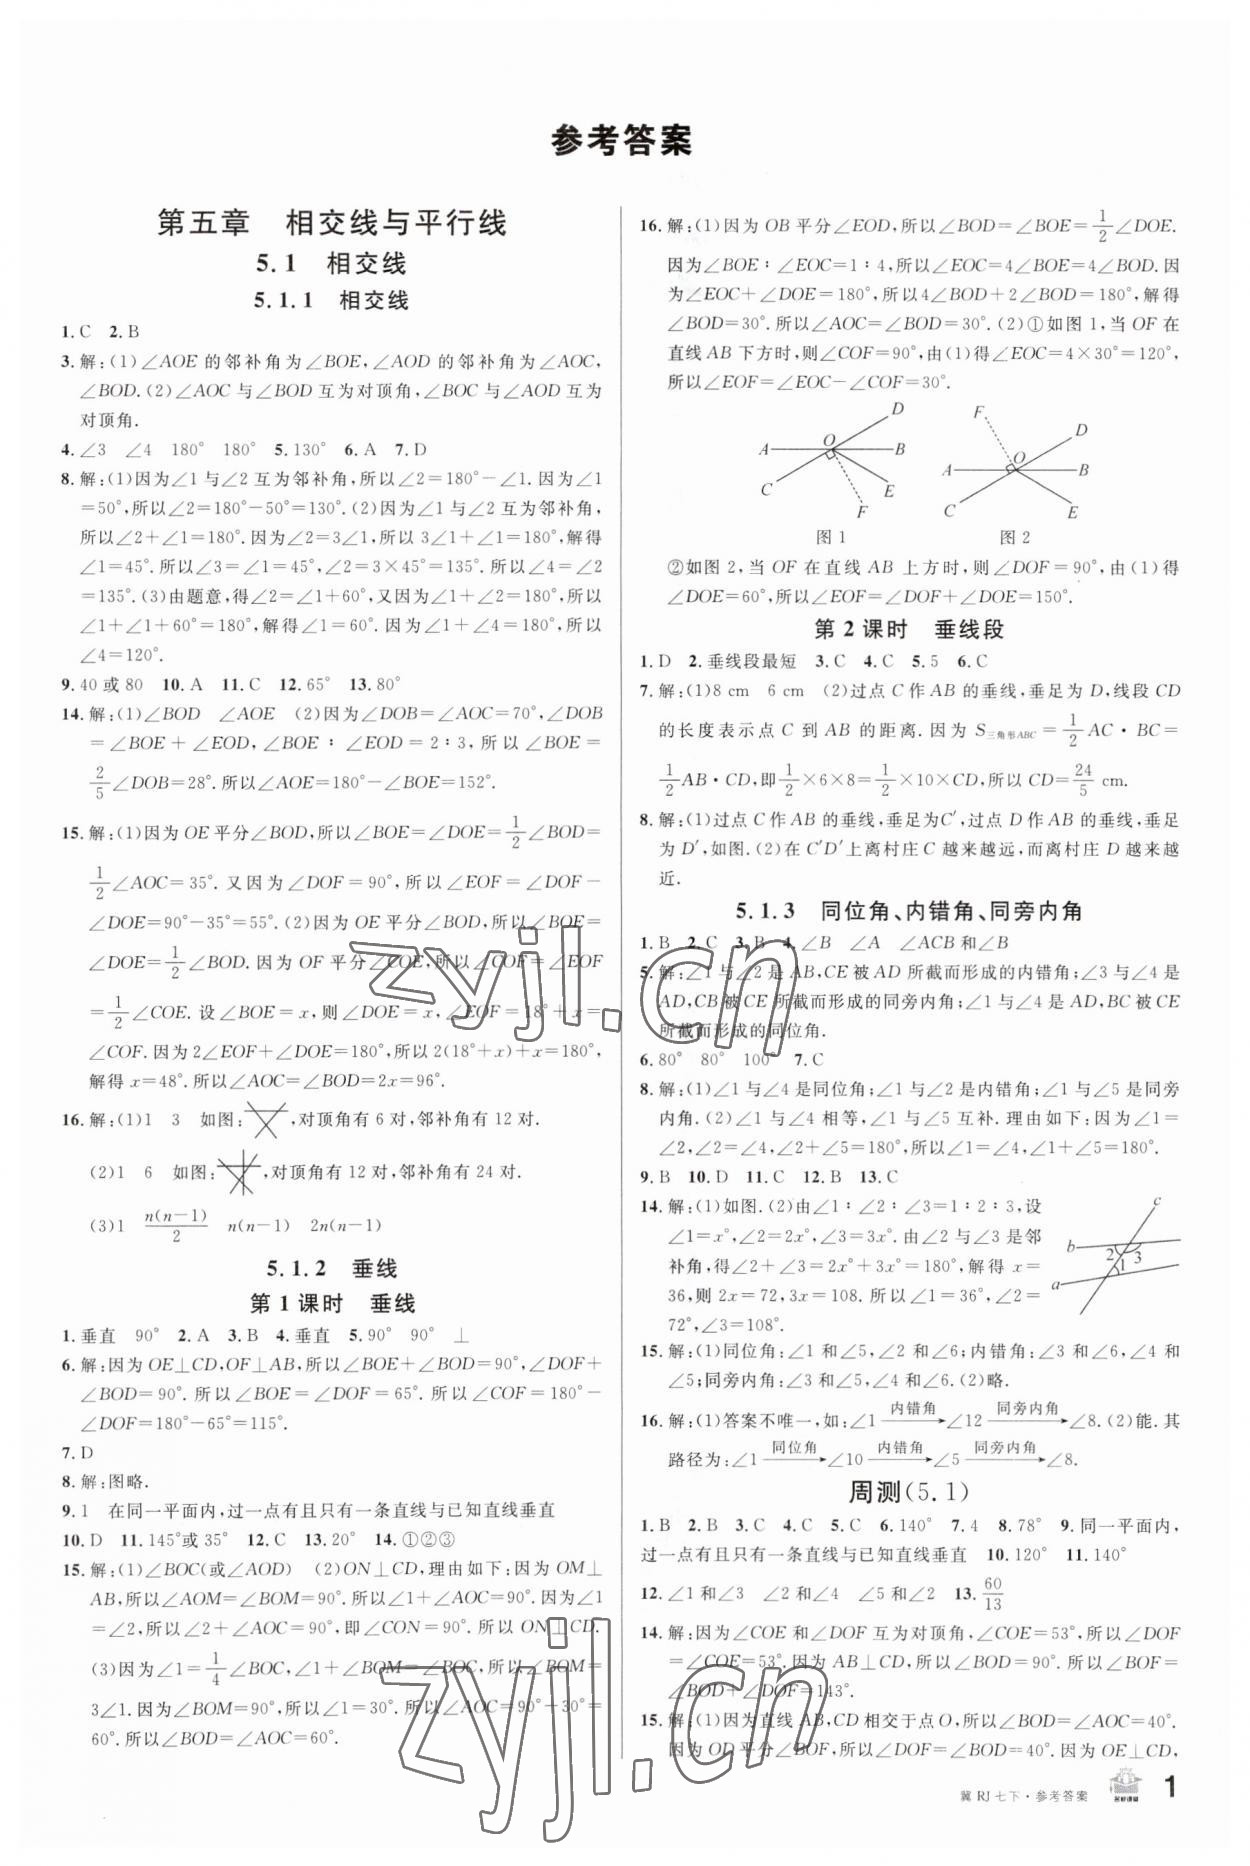 参考答案
第五章　相交线与平行线
5.1　相交线
5.1.1　相交线
1.C　2.B
3.解:(1)∠AOE 的邻补角为∠BOE,∠AOD 的邻补角为∠AOC,
∠BOD.(2)∠AOC 与∠BOD 互为对顶角,∠BOC 与∠AOD 互为
对顶角.
4.∠3　∠4　180°　180°　5.130°　6.A　7.D
8.解:(1)因为∠1 与∠2 互为邻补角,所以∠2=180°-∠1.因为∠1
=50°,所以∠2=180°-50°=130°.(2)因为∠1 与∠2 互为邻补角,
所以∠2+∠1=180°.因为∠2=3∠1,所以 3∠1+∠1=180°,解得
∠1=45°.所以∠3=∠1=45°,∠2=3×45°=135°.所以∠4=∠2
=135°.(3)由题意,得∠2=∠1+60°,又因为∠1+∠2=180°,所以
∠1+∠1+60°=180°,解得∠1=60°.因为∠1+∠4=180°,所以
∠4=120°.
9.40 或 80　10.A　11.C　12.65°　13.80°
14.解:(1)∠BOD　∠AOE　(2)因为∠DOB=∠AOC=70°,∠DOB
=∠BOE+∠EOD,∠BOE∶∠EOD=2∶3,所以∠BOE=
2/5∠DOB=28°.所以∠AOE=180°-∠BOE=152°.
15.解:(1)因为 OE 平分∠BOD,所以∠BOE=∠DOE=1/2∠BOD=
1/2∠AOC=35°.又因为∠DOF=90°,所以∠EOF=∠DOF-
∠DOE=90°-35°=55°.(2)因为 OE 平分∠BOD,所以∠BOE=
∠DOE=1/2∠BOD.因为 OF 平分∠COE,所以∠COF=∠EOF
=1/2∠COE.设∠BOE=x,则∠DOE=x,∠EOF=18°+x=
∠COF.因为 2∠EOF+∠DOE=180°,所以 2(18°+x)+x=180°,
解得 x=48°.所以∠AOC=∠BOD=2x=96°.
16.解:(1)1　3　如图:,对顶角有 6 对,邻补角有 12 对.
(2)1　6　如图:,对顶角有 12 对,邻补角有 24 对.
(3)1　n(n-1)/2　n(n-1)　2n(n-1)
5.1.2　垂线
第 1 课时　垂线
1.垂直　90°　2.A　3.B　4.垂直　5.90°　90°　⊥
6.解:因为 OE⊥CD,OF⊥AB,所以∠BOE+∠BOD=90°,∠DOF+
∠BOD=90°.所以∠BOE=∠DOF=65°.所以∠COF=180°-
∠DOF=180°-65°=115°.
7.D
8.解:图略.
9.1　在同一平面内,过一点有且只有一条直线与已知直线垂直
10.D　11.145°或 35°　12.C　13.20°　14.①②③
15.解:(1)∠BOC(或∠AOD)　(2)ON⊥CD,理由如下:因为 OM⊥
AB,所以∠AOM=∠BOM=90°.所以∠1+∠AOC=90°.因为∠1
=∠2,所以∠2+∠AOC=90°,即∠CON=90°.所以 ON⊥CD.
(3)因为∠1=1/4∠BOC,∠1+∠BOM=∠BOC,所以∠BOM=
3∠1.因为∠BOM=90°,所以∠1=30°.所以∠AOC=90°-30°=
60°.所以∠BOD=∠AOC=60°.
16.解:(1)因为 OB 平分∠EOD,所以∠BOD=∠BOE=1/2∠DOE.
因为∠BOE∶∠EOC=1∶4,所以∠EOC=4∠BOE=4∠BOD.因
为∠EOC+∠DOE=180°,所以 4∠BOD+2∠BOD=180°,解得
∠BOD=30°.所以∠AOC=∠BOD=30°.(2)①如图 1,当 OF 在
直线 AB 下方时,则∠COF=90°,由(1)得∠EOC=4×30°=120°,
所以∠EOF=∠EOC-∠COF=30°.
D
A O B
C E
F
图 1
F D
A O B
C E
图 2
②如图 2,当 OF 在直线 AB 上方时,则∠DOF=90°,由(1)得
∠DOE=60°,所以∠EOF=∠DOF+∠DOE=150°.
第 2 课时　垂线段
1.D　2.垂线段最短　3.C　4.C　5.5　6.C
7.解:(1)8 cm　6 cm　(2)过点 C 作 AB 的垂线,垂足为 D,线段 CD
的长度表示点 C 到 AB 的距离.因为 S三角形ABC=1/2AC·BC=
1/2AB·CD,即1/2×6×8=1/2×10×CD,所以 CD=24/5 cm.
8.解:(1)过点 C 作 AB 的垂线,垂足为C′,过点 D 作 AB 的垂线,垂足
为 D′,如图.(2)在 C′D′上离村庄 C 越来越远,而离村庄 D 越来越
近.
5.1.3　同位角、内错角、同旁内角
1.B　2.C　3.B　4.∠B　∠A　∠ACB 和∠B
5.解:∠1 与∠2 是 AB,CE 被 AD 所截而形成的内错角;∠3 与∠4 是
AD,CB 被 CE 所截而形成的同旁内角;∠1 与∠4 是 AD,BC 被 CE
所截而形成的同位角.
6.80°　80°　100°　7.C
8.解:(1)∠1 与∠4 是同位角;∠1 与∠2 是内错角;∠1 与∠5 是同旁
内角.(2)∠1 与∠4 相等,∠1 与∠5 互补.理由如下:因为∠1=
∠2,∠2=∠4,∠2+∠5=180°,所以∠1=∠4,∠1+∠5=180°.
9.B　10.D　11.C　12.B　13.C
14.解:(1)如图.(2)由∠1∶∠2∶∠3=1∶2∶3,设
∠1=x°,∠2=2x°,∠3=3x°.由∠2 与∠3 是邻
补角,得∠2+∠3=2x°+3x°=180°,解得 x=
36,则 2x=72,3x=108.所以∠1=36°,∠2=
72°,∠3=108°.
c
b 2 3
1
a
15.解:(1)同位角:∠1 和∠5,∠2 和∠6;内错角:∠3 和∠6,∠4 和
∠5;同旁内角:∠3 和∠5,∠4 和∠6.(2)略.
16.解:(1)答案不唯一,如:∠1 内错角→ ∠12 同旁内角→ ∠8.(2)能.其
路径为:∠1 同位角→ ∠10 内错角→ ∠5 同旁内角→ ∠8.
周测(5.1)
1.B　2.B　3.B　4.C　5.C　6.140°　7.4　8.78°　9.同一平面内,
过一点有且只有一条直线与已知直线垂直　10.120°　11.140°
12.∠1 和∠3　∠2 和∠4　∠5 和∠2　13.60/13
14.解:因为∠COE 和∠DOF 互为对顶角,∠COE=53°,所以∠DOF
=∠COE=53°.因为 AB⊥CD,所以∠BOD=90°.所以∠BOF=
∠BOD+∠DOF=143°.
15.解:(1)因为直线 AB,CD 相交于点 O,所以∠BOD=∠AOC=40°.
因为 OD 平分∠BOF,所以∠DOF=∠BOD=40°.因为 OE⊥CD,
zyjl.cn
zyjl.cn
冀 RJ 七下·参考答案　名校课堂　1